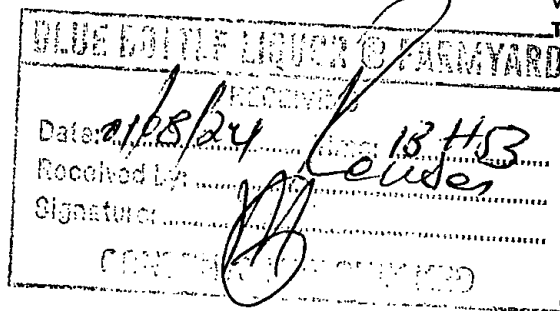 BLUE BOTTLE LIQUOR @ FARMYARD
RECEIVING
Date: 01/08/24 Time: 13H53
Received By:
Signature: